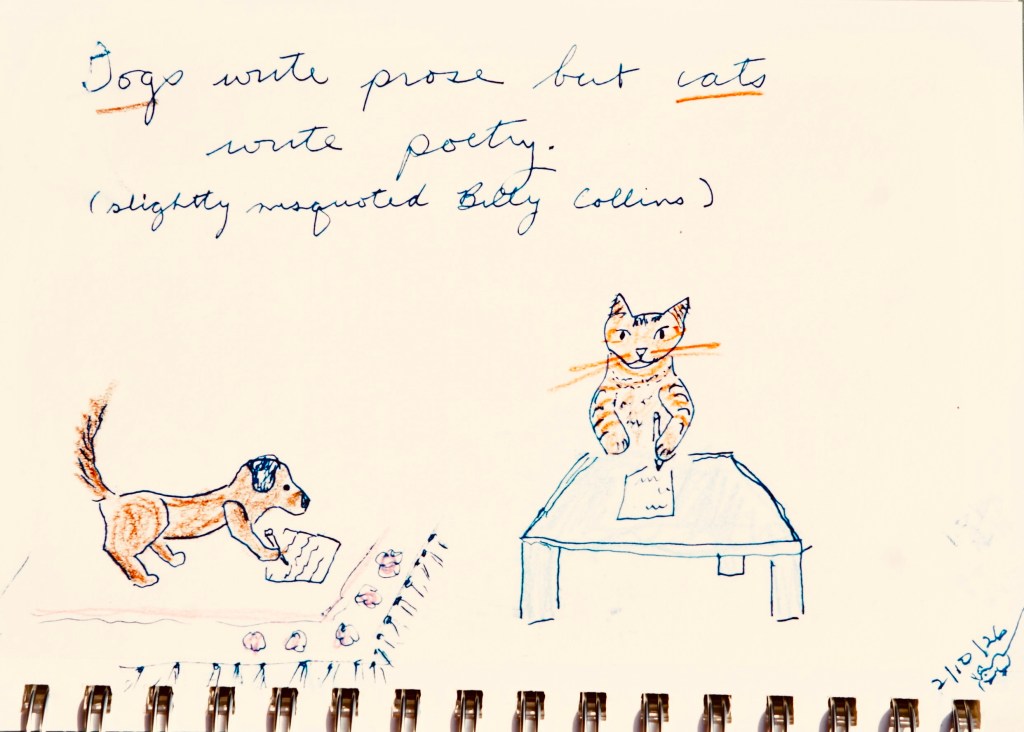 Dogs write prose but cats
write poetry.
(slightly misquoted Billy Collins)
2/10/26